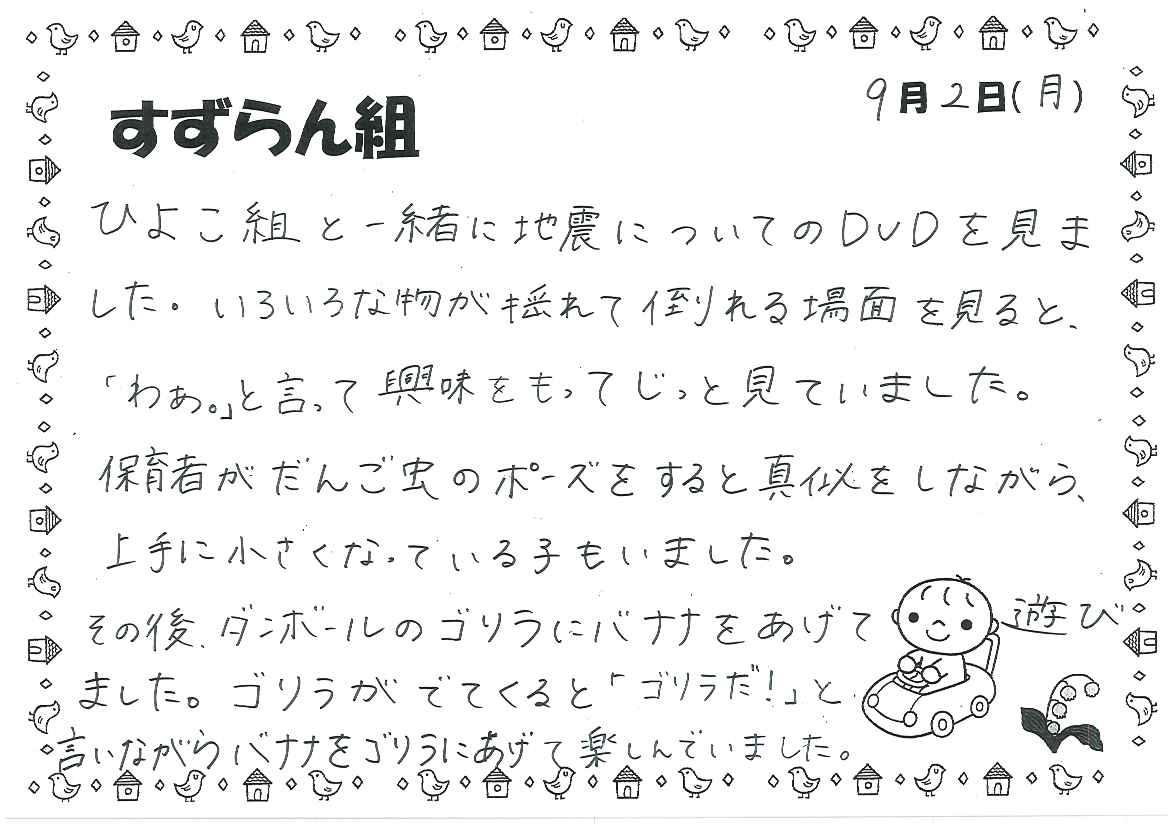 9月2日(月)
すずらん組
ひよこ組と一緒に地震についてのDVDを見ま
した。いろいろな物が揺れて倒れる場面を見ると、
「わぁ。」と言って興味をもってじっと見ていました。
保育者がだんご虫のポーズをすると真似をしながら、
上手に小さくなっている子もいました。
その後、ダンボールのゴリラにバナナをあげて遊び
ました。ゴリラがでてくると「ゴリラだ!」と
言いながらバナナをゴリラにあげて楽しんでいました。